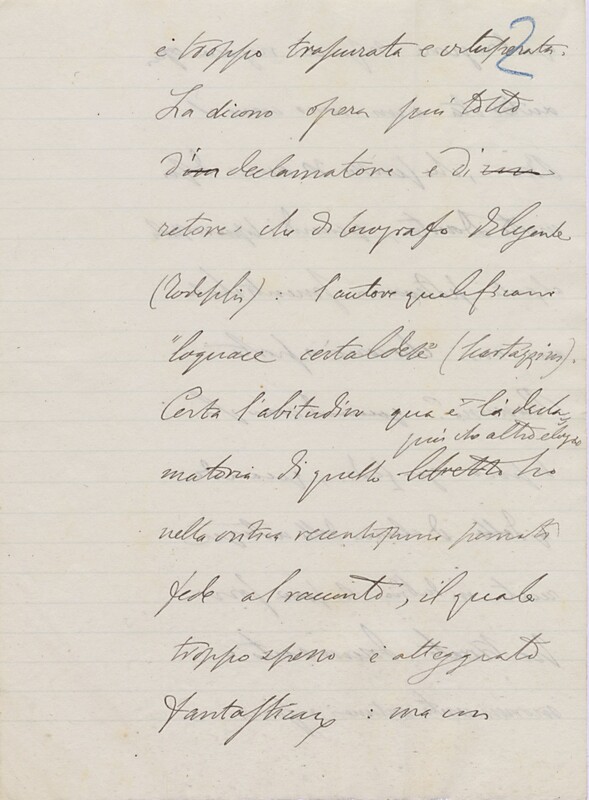 2
è troppo trascurata e vituperata.
La dicono opera più tosto
d'un declamatore e di un
retore, che di biografo diligente
(          ): l'autore qualificano
"loquace certaldese" (Scartazzini).
Certo l'abitudine qua e là decla-
più che altro elogio
matoria di quello libretto ha
nella critica recentissima
fede al racconto, il quale
troppo spesso è atteggiato
: ma un